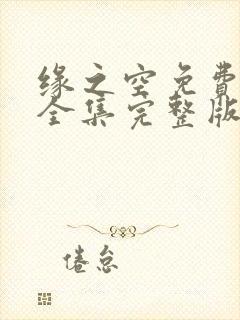 缘之空免费
全集完整版
倦怠